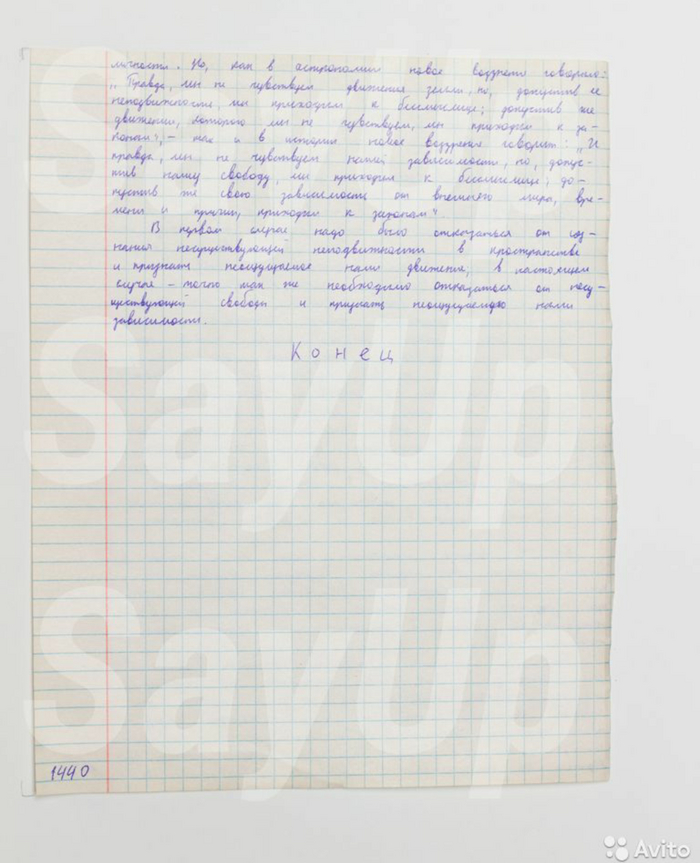 личности. Но, как в астрономии новое воззрение говорило:
„Правда, мы не чувствуем движения земли, но, допустив ее
неподвижность, мы приходим к бессмыслице; допустив же
движение, которого мы не чувствуем, мы приходим к за-
конам", – так и в истории новое воззрение говорит: „И
правда, мы не чувствуем нашей зависимости, но, допус-
тив нашу свободу, мы приходим к бессмыслице; до-
пустив же свою зависимость от внешнего мира, вре-
мени и причин, приходим к законам".
В первом случае надо было отказаться от соз-
нания несуществующей неподвижности в пространстве
и признать неощущаемое нами движение; в настоящем
случае – точно так же необходимо отказаться от несу-
ществующей свободы и признать неощущаемую нами
зависимость.
Конец
1440
SayUp
SayUp
Avito